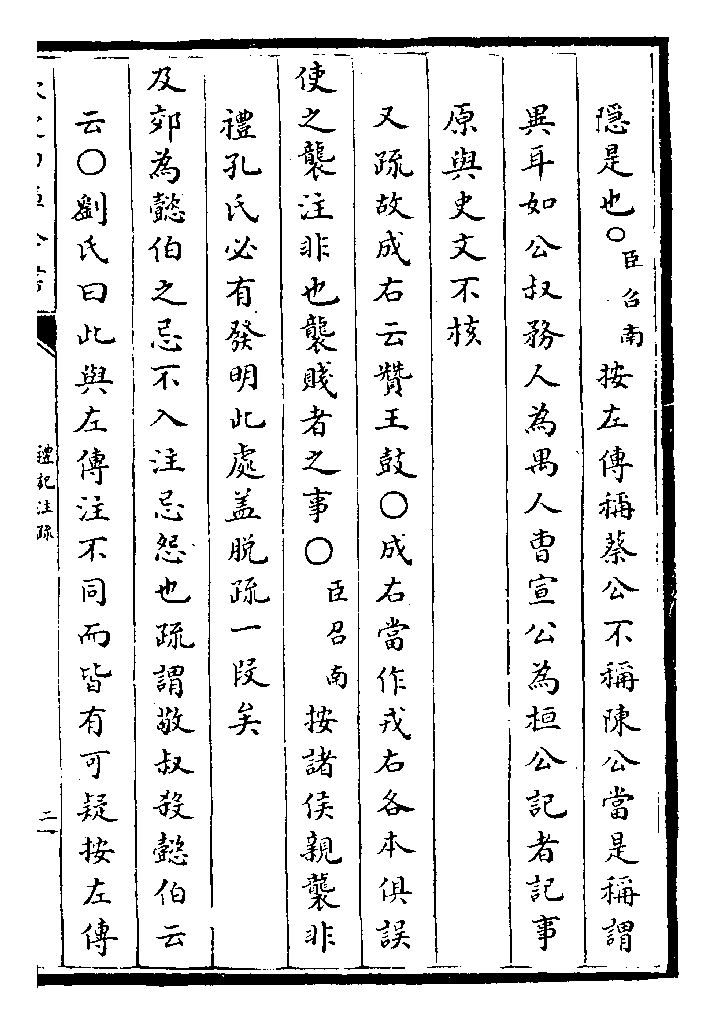 隱是也○臣召南按左傳稱蔡公不稱陳公當是稱謂
異耳如公叔務人為禺人曹宣公為桓公記者記事
原與史文不核
又疏故成右云贊王鼓○成右當作戎右各本俱誤
使之襲注非也襲賤者之事○臣召南按諸侯親襲非
禮孔氏必有發明此處盖脫疏一段矣
及郊為懿伯之忌不入注忌怨也疏謂敬叔殺懿伯云
云○劉氏曰此與左傳注不同而皆有可疑按左傳
禮記注疏
二